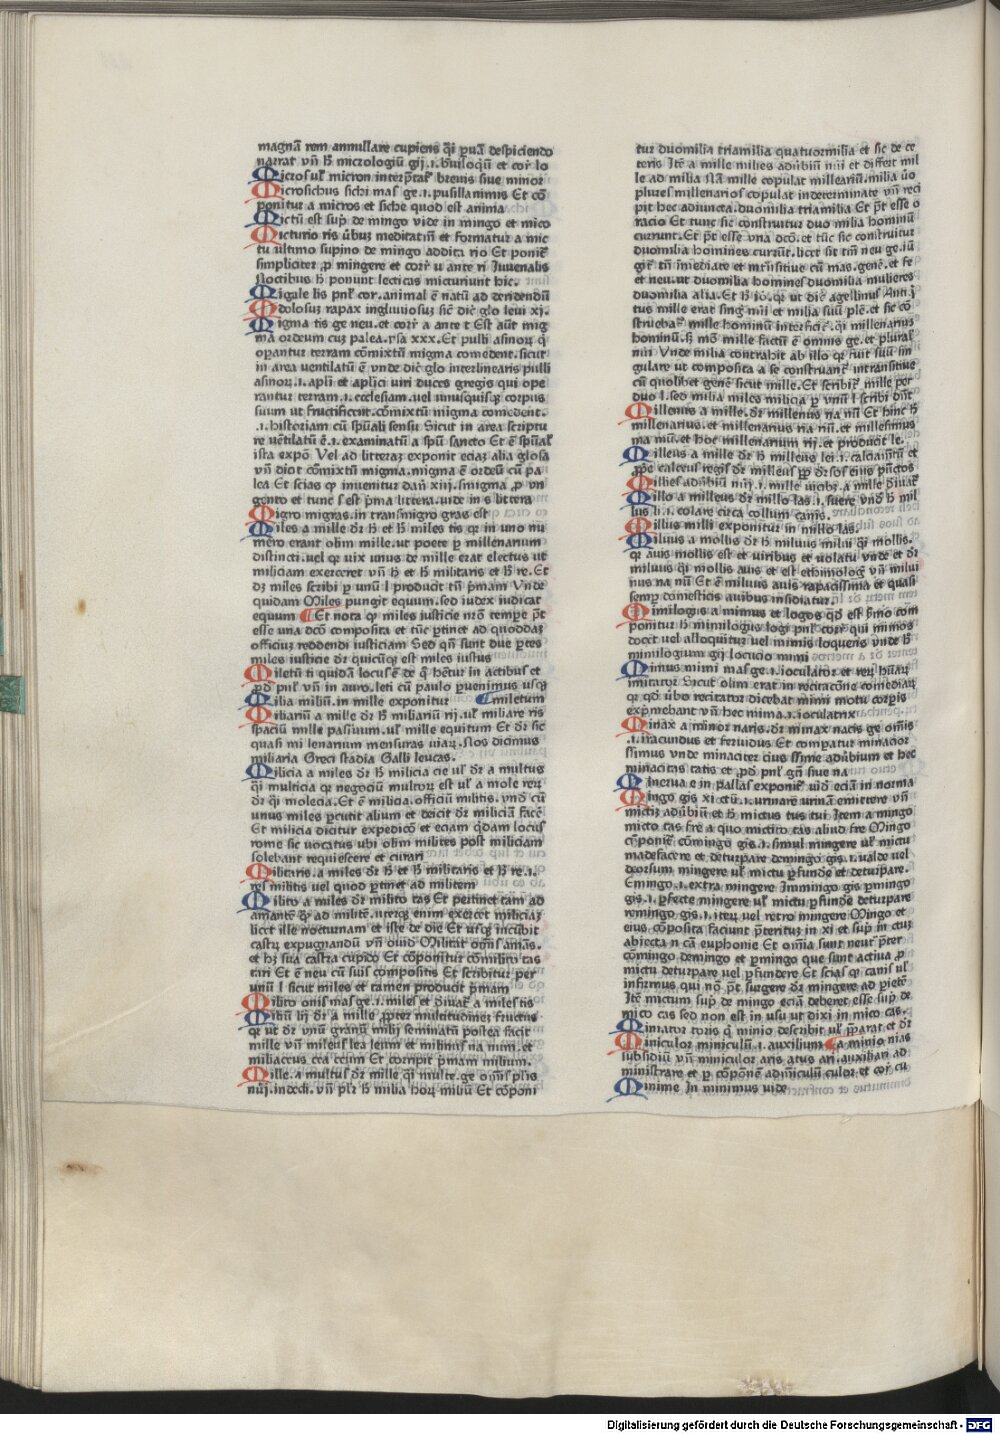 magnā rem annullare cupiens q̄i ꝑuā despiciendo
narrat vn̄ h̄ micrologiū gij .i. b̄uiloquiū et corr̄ lo
Micros ul̓ micron interp̄tat᷑ breuis siue minor
Microsichus sichi mas᷑ ge .i. pusillanimis Et cō
ponitur a micros et siche quod est anima
Mictū est sup̄ de mingo vide in mingo et mico
Micturio ris ūbuz meditatiuū et formatur a mic
tu ultimo supino de mingo addita rio Et ponit᷑
simpliciter ꝓ mingere et corr̄ u ante ri Juuenalis
Noctibus h̄ ponunt lecticas micturiunt hic.
Migale lis pnl̓ cor. animal ē natū ad
dolosuz rapax ingluuiosuz sic̄ dic̄ glo leui xj.
Migma tis ge neu. et corr̄ a ante t Est aūt mig
ma ordeum cuz palea. ysa xxx. Et pulli asinorꝝ q̄
oꝑantur terram cōmixtū migma comedent. sicut
in area ventilatū ē vnde dic̄ glo interlinearis pulli
asinorꝝ .i. apl̓i et apl̓ici viri duces gregis qui ope
rantur terram .i. ecclesiam. uel unusquisqꝫ corpus
suum ut fructificent. cōmixtū migma comedent.
.i. historiam cū sp̄uali sensu Sicut in area scriptu
re uētilatū ē .i. examinatū a sp̄u sancto Et ē sp̄ual̓
ista expō. Vel ad litteraz exponit eciaz alia glosa
vn̄ dicit cōmixtū migma. migma ē ordeū cū pa
lea Et scias ꝙ inuenitur dan̄ xiij. smigma ꝓ vn
gento et tunc s est p̄ma littera. uide in s littera
Migro migras. in transmigro gras est
Miles a mille dr̄ h̄ et h̄ miles tis qꝛ in uno nu
mero erant olim mille. ut poete ꝑ millenarium
distincti. uel qꝛ uix unus de mille erat electus ut
miliciam exerceret vn̄ h̄ et h̄ militaris et h̄ re. Et
dꝫ miles scribi ꝑ unū l producit tn̄ p̄mam Vnde
quidam Miles pungit equum. sed iudex iudicat
equum Et nota ꝙ miles iusticie nrō tempe p̄t
esse una dcō composita et tūc ꝑtinet ad quoddaz
officiuz reddendi iusticiam Sed qn̄ sunt due ꝑtes
miles iusticie dr̄ quicūqꝫ est miles iustus
Miletū ti quidā locus ē de q̄ hētur in actibus et
ꝓd pnl̓ vn̄ in auro. leti cū paulo ꝑuenimus usqꝫ
Milia miliū. in mille exponitur miletum
Miliariū a mille dr̄ h̄ miliariū rij. ul̓ miliare ris
spaciū mille passuum. ul̓ mille equitum Et dr̄ sic
quasi millenarium mensuras uiarꝝ. Nos dicimus
miliaria Greci stadia Galli leucas.
Milicia a miles dr̄ h̄ milicia cie ul̓ dr̄ a multus
q̄i multicia qꝛ negociū multorꝝ est ul̓ a mole rerꝝ
dr̄ q̄i molecia. Et ē milicia. officiū militis. vnd̄ cū
unus miles ꝑcutit alium et deicit dr̄ miliciā facē
Et milicia dicitur expedicō et eciam q̄dam locus
rome sic uocatus ubi olim milites post miliciam
solebant requiescere et curari
Militaris. a miles dr̄ h̄ et h̄ militaris et h̄ re .i.
res militis uel quod ꝑtinet ad militem
Milito a miles dr̄ milito tas Et pertinet tam ad
amantē qꝫ ad militē. uterqꝫ enim exercet miliciaz
licet ille nocturnam et iste de die Et usqꝫ incūbit
castrꝝ expugnandū vn̄ ouid Militat om̄s amās.
et hꝫ sua castra cupido Et cōponitur cōmilito tas
tari Et ē neu cū suis compositis Et scribitur per
unū l sicut miles et tamen producit p̄mam
Milito onis mas ge .i. miles et d̄iuat᷑ a miles tis
Miliū lij dr̄ a mille ꝓpter multitudinez fructus
qꝛ ut dr̄ vnū granū milij seminatū postea facit
mille vn̄ mileus lea leum et milinus na num. et
miliaceus cea ceum Et corripit p̄mam milium.
Mille. a multus dr̄ mille q̄i multe. ge om̄s pl̓is
nūi. indecli. vn̄ pl̓r h̄ milia horꝝ miliū Et cōponi
tur duomilia triamilia quatuormilia et sic de ce
teris Itē a mille milies adūbiū nūi et differt mil
le ad milia Nā mille copulat millenariū. milia ūo
plures millenarios copulat indeterminate vn̄ reci
pit hec adiuncta. duomilia triamilia Et p̄t esse o
racio Et tunc sic construitur duo milia hominū
currunt. Et p̄t esse vna dcō. et tūc sic construitur
duomilia homines currūt. licet sit tm̄ neu ge. iū
git̄ tn̄ īmediate et intr̄asitiue cū mas. genē. et fe
et neu. ut duomilia homines duomilia mulieres
duomilia alia. Et h̄ iō. qꝛ ut dic̄ agellinus Anti.
tus mille erat sing̓ nūi et milia suū plē. et sic cō
struebat᷑ mille hominū interficit᷑. q̄i millenarius
hominū. sꝫ mō mille factū ē omnis ge. et plural̓
nūi Vnde milia contrahit ab illo qꝛ fuit suū sin
gulare ut composita a se construant᷑ intransitiue
cū quolibet genē sicut mille. Et scribit᷑ mille per
duo l. sed milia miles milicia ꝑ vnū l scribi dn̄t
Millenus a mille. dr̄ millenus na nū Et hinc h̄
millenarius. et millenarius na nū. et millesimus
ma mū. et hoc millenarium rij. et producit le.
Milleus a mille dr̄ h̄ milleus lei .i. calciamtū et
ꝓpe calceus regis dr̄ milleus ꝓꝑ dr̄sos eius pūctos
Millies adūbiū nūi .i. mille uicibꝫ. a mille d̄iuat᷑
Millo a milleus dr̄ millo las .i. suere vnd̄ h̄ mil
lus li .i. colare circa collum canis.
Millus milli exponitur in millo las.
Miluus a mollis dr̄ h̄ miluus milui q̄i mollis.
qꝛ auis mollis est et viribus et uolatu vnde et dr̄
miluus q̄i mollis auis et est ethimolog̓ vn̄ milui
nus na nū Et ē miluus auis rapacissima et quasi
semꝑ domesticis auibus insidiatur.
Mimilogus a mimus et logos qd̄ est s̄mo com
ponitur h̄ mimilogus logi pnl̓ corr̄ qui mimos
docet uel alloquitur uel mimis loquens vnde h̄
mimilogium gij locucio mimi
Mimus mimi mas ge .i. ioculator et rerꝝ hūarꝝ
imitator Sicut olim erat in recitacōne comediarꝝ
qꝛ qd̄ ūbo recitator dicebat mimi motu corꝑis
exp̄mebant vn̄ hec mima .i. ioculatrix
Minax a minor naris. dr̄ minax nacis ge om̄is
.i. iracundus et feruidus Et compatur minacior
ssimus vnde minaciter cius ssime adūbium et hec
minacitas tatis et ꝓd pnl̓ gn̄i siue na
Minerua e in pallas exponit᷑ uid̄ eciā in norma
Mingo gis xi ctū .i. urinare urinā emittere vn̄
mictiz adūbiū et h̄ mictus tus tui Item a mingo
micto tas fre a quo mictito tas aliud fre Mingo
cōponit᷑ cōmingo gis .i. simul mingere ul̓ mictu
madefacere et deturpare demingo gis .i. ualde uel
deorsum mingere ul̓ mictu ꝑfunde et deturpare.
Emingo .i. extra mingere Immingo gis ꝑmingo
gis .i. ꝑfecte mingere ul̓ mictu ꝑfunde deturpare
remingo gis .i. iteꝝ uel retro mingere Mingo et
eius cōposita faciunt p̄teritum in xi et sup̄ in ctum
abiecta n cā euphonie Et om̄ia sunt neut᷑ p̄ter
cōmingo demingo et ꝑmingo que sunt actiua ꝓ
mictu deturpare uel ꝑfundere Et scias ꝙ canis ul̓
infirmus qui nō p̄t surgere dr̄ mingere ad ꝑietē
Itē mictum sup̄ de mingo eciā deberet esse sup̄ de
mico cas sed non est in usu ut dixi in mico cas.
Miniator toris q̄ minio describit ul̓ p̄parat et dr̄
Miniculor miniculiū .i. auxilium a minio nias
subsidiū vn̄ miniculor aris atus ari. auxiliari ad
ministrare et ꝑ cōponē admiculū culor et cor̄ cu
Minime In minimus uide
Digitalisierung gefördert durch die Deutsche Forschungsgemeinschaft - DFG